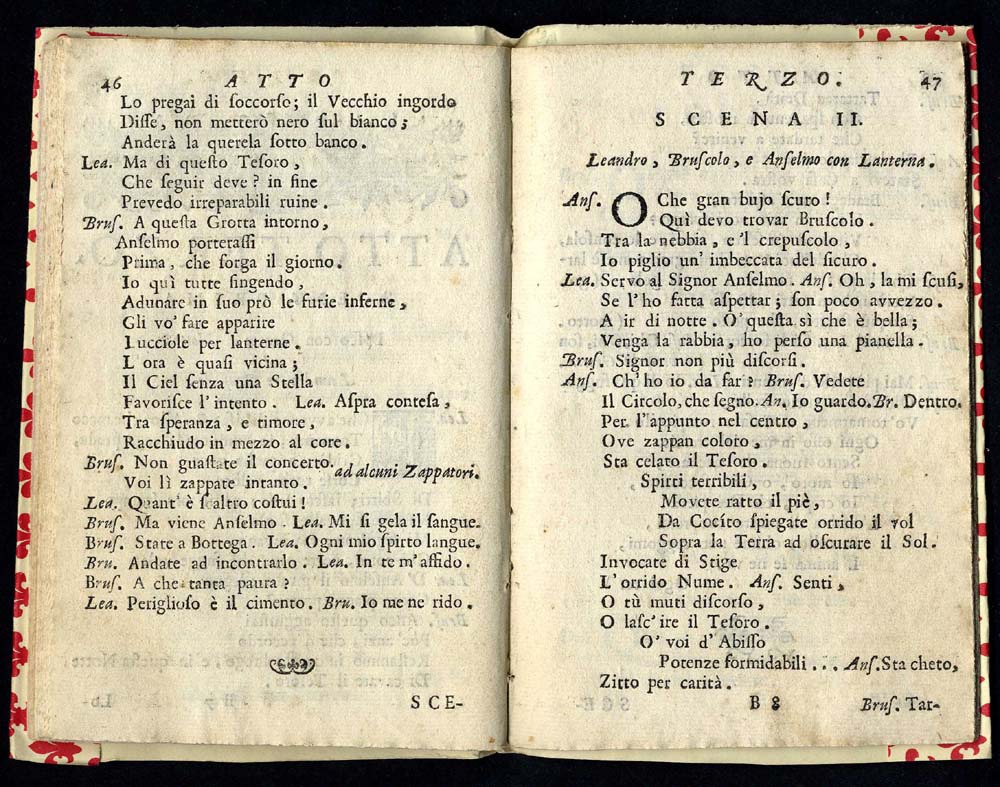 46 ATTO
Lo pregai di ſoccorſo; il Vecchio ingordo
Diſſe, non metterò nero ſul bianco;
Anderà la querela ſotto banco.
Lea. Ma di queſto Teſoro,
Che ſeguir deve? in fine
Prevedo irreparabili ruine.
Bruſ. A queſta Grotta intorno,
Anſelmo porteraſſi
Prima, che ſorga il giorno.
Io quì tutte fingendo,
Adunare in ſuo prò le furie inferne,
Gli vo' fare apparire
Lucciole per lanterne.
L'ora è quaſi vicina;
Il Ciel ſenza una Stella
Favoriſce l'intento. Lea. Aſpra conteſa,
Tra ſperanza, e timore,
Racchiudo in mezzo al core.
Bruſ. Non guaſtate il concerto. ad alcuni Zappatori.
Voi lì zappate intanto.
Lea. Quant' è ſcaltro coſtui!
Bruſ. Ma viene Anſelmo. Lea. Mi ſi gela il ſangue.
Bruſ. State a Bottega. Lea. Ogni mio ſpirto langue.
Bru. Andate ad incontrarlo. Lea. In te m'affido.
Bruſ. A che tanta paura?
Lea. Periglioſo è il cimento. Bru. Io me ne rido.
SCE-
TERZO. 47
SCENA II.
Leandro, Bruſcolo, e Anſelmo con Lanterna.
Anſ. O Che gran bujo ſcuro!
Quì devo trovar Bruſcolo.
Tra la nebbia, e 'l crepuſcolo,
Io piglio un' imbeccata del ſicuro.
Lea. Servo al Signor Anſelmo. Anſ. Oh, la mi ſcuſi,
Se l'ho fatta aſpettar; ſon poco avvezzo.
A ir di notte. O' queſta sì che è bella;
Venga la rabbia, ho perſo una pianella.
Bruſ. Signor non più diſcorſi.
Anſ. Ch' ho io da far? Bruſ. Vedete
Il Circolo, che ſegno. An. Io guardo. Br. Dentro.
Per l'appunto nel centro,
Ove zappan coloro,
Sta celato il Teſoro.
Spirti terribili,
Movete ratto il piè,
Da Cocíto ſpiegate orrido il vol
Sopra la Terra ad oſcurare il Sol.
Invocate di Stige
L'orrido Nume. Anſ. Senti,
O tù muti diſcorſo,
O laſc' ire il Teſoro.
O' voi d' Abiſſo
Potenze formidabili... Anſ. Sta cheto,
Zitto per carità.
B 8 Bruſ. Tar-